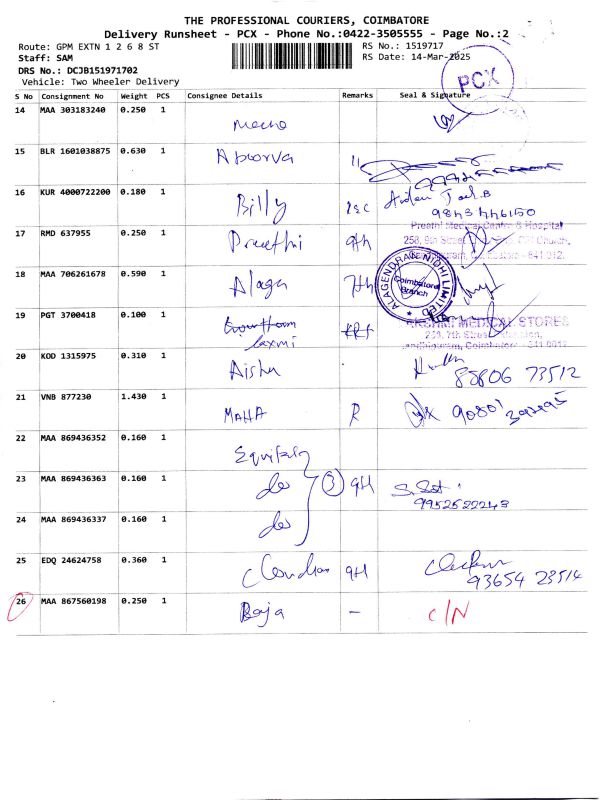 THE PROFESSIONAL COURIERS, COIMBATORE
Delivery Runsheet - PCX - Phone No.:0422-3505555 - Page No.:2
Route: GPM EXTN 1 2 6 8 ST
RS No.: 1519717
Staff: SAM
RS Date: 14-Mar-2025
DRS No.: DCJB151971702
Vehicle: Two Wheeler Delivery
PCX
S No Consignment No Weight PCS Consignee Details Remarks Seal & Signature
14 MAA 303183240 0.250 1
15 BLR 1601038875 0.630 1 Apoorva 11
16 KUR 4000722200 0.180 1 Billy
9843446150
17 RMD 637955 0.250 1 Preethi 9th
Preethi Medical Centre & Hospital
18 MAA 706261678 0.590 1 Alaga 7th
ALAGENDRAN NIDHI LIMITED
Coimbatore
Branch
19 PGT 3700418 0.100 1 Gowtham
laxmi
MEDICAL STORES
20 KOD 1315975 0.310 1 Aisha
85806 73512
21 VNB 877230 1.430 1 MAHA R
22 MAA 869436352 0.160 1 Equitas
23 MAA 869436363 0.160 1 do 3 9H
9952522243
24 MAA 869436337 0.160 1 do
25 EDQ 24624758 0.360 1 Chandran 9H
93654 23514
26 MAA 867560198 0.250 1 Raja - C/N